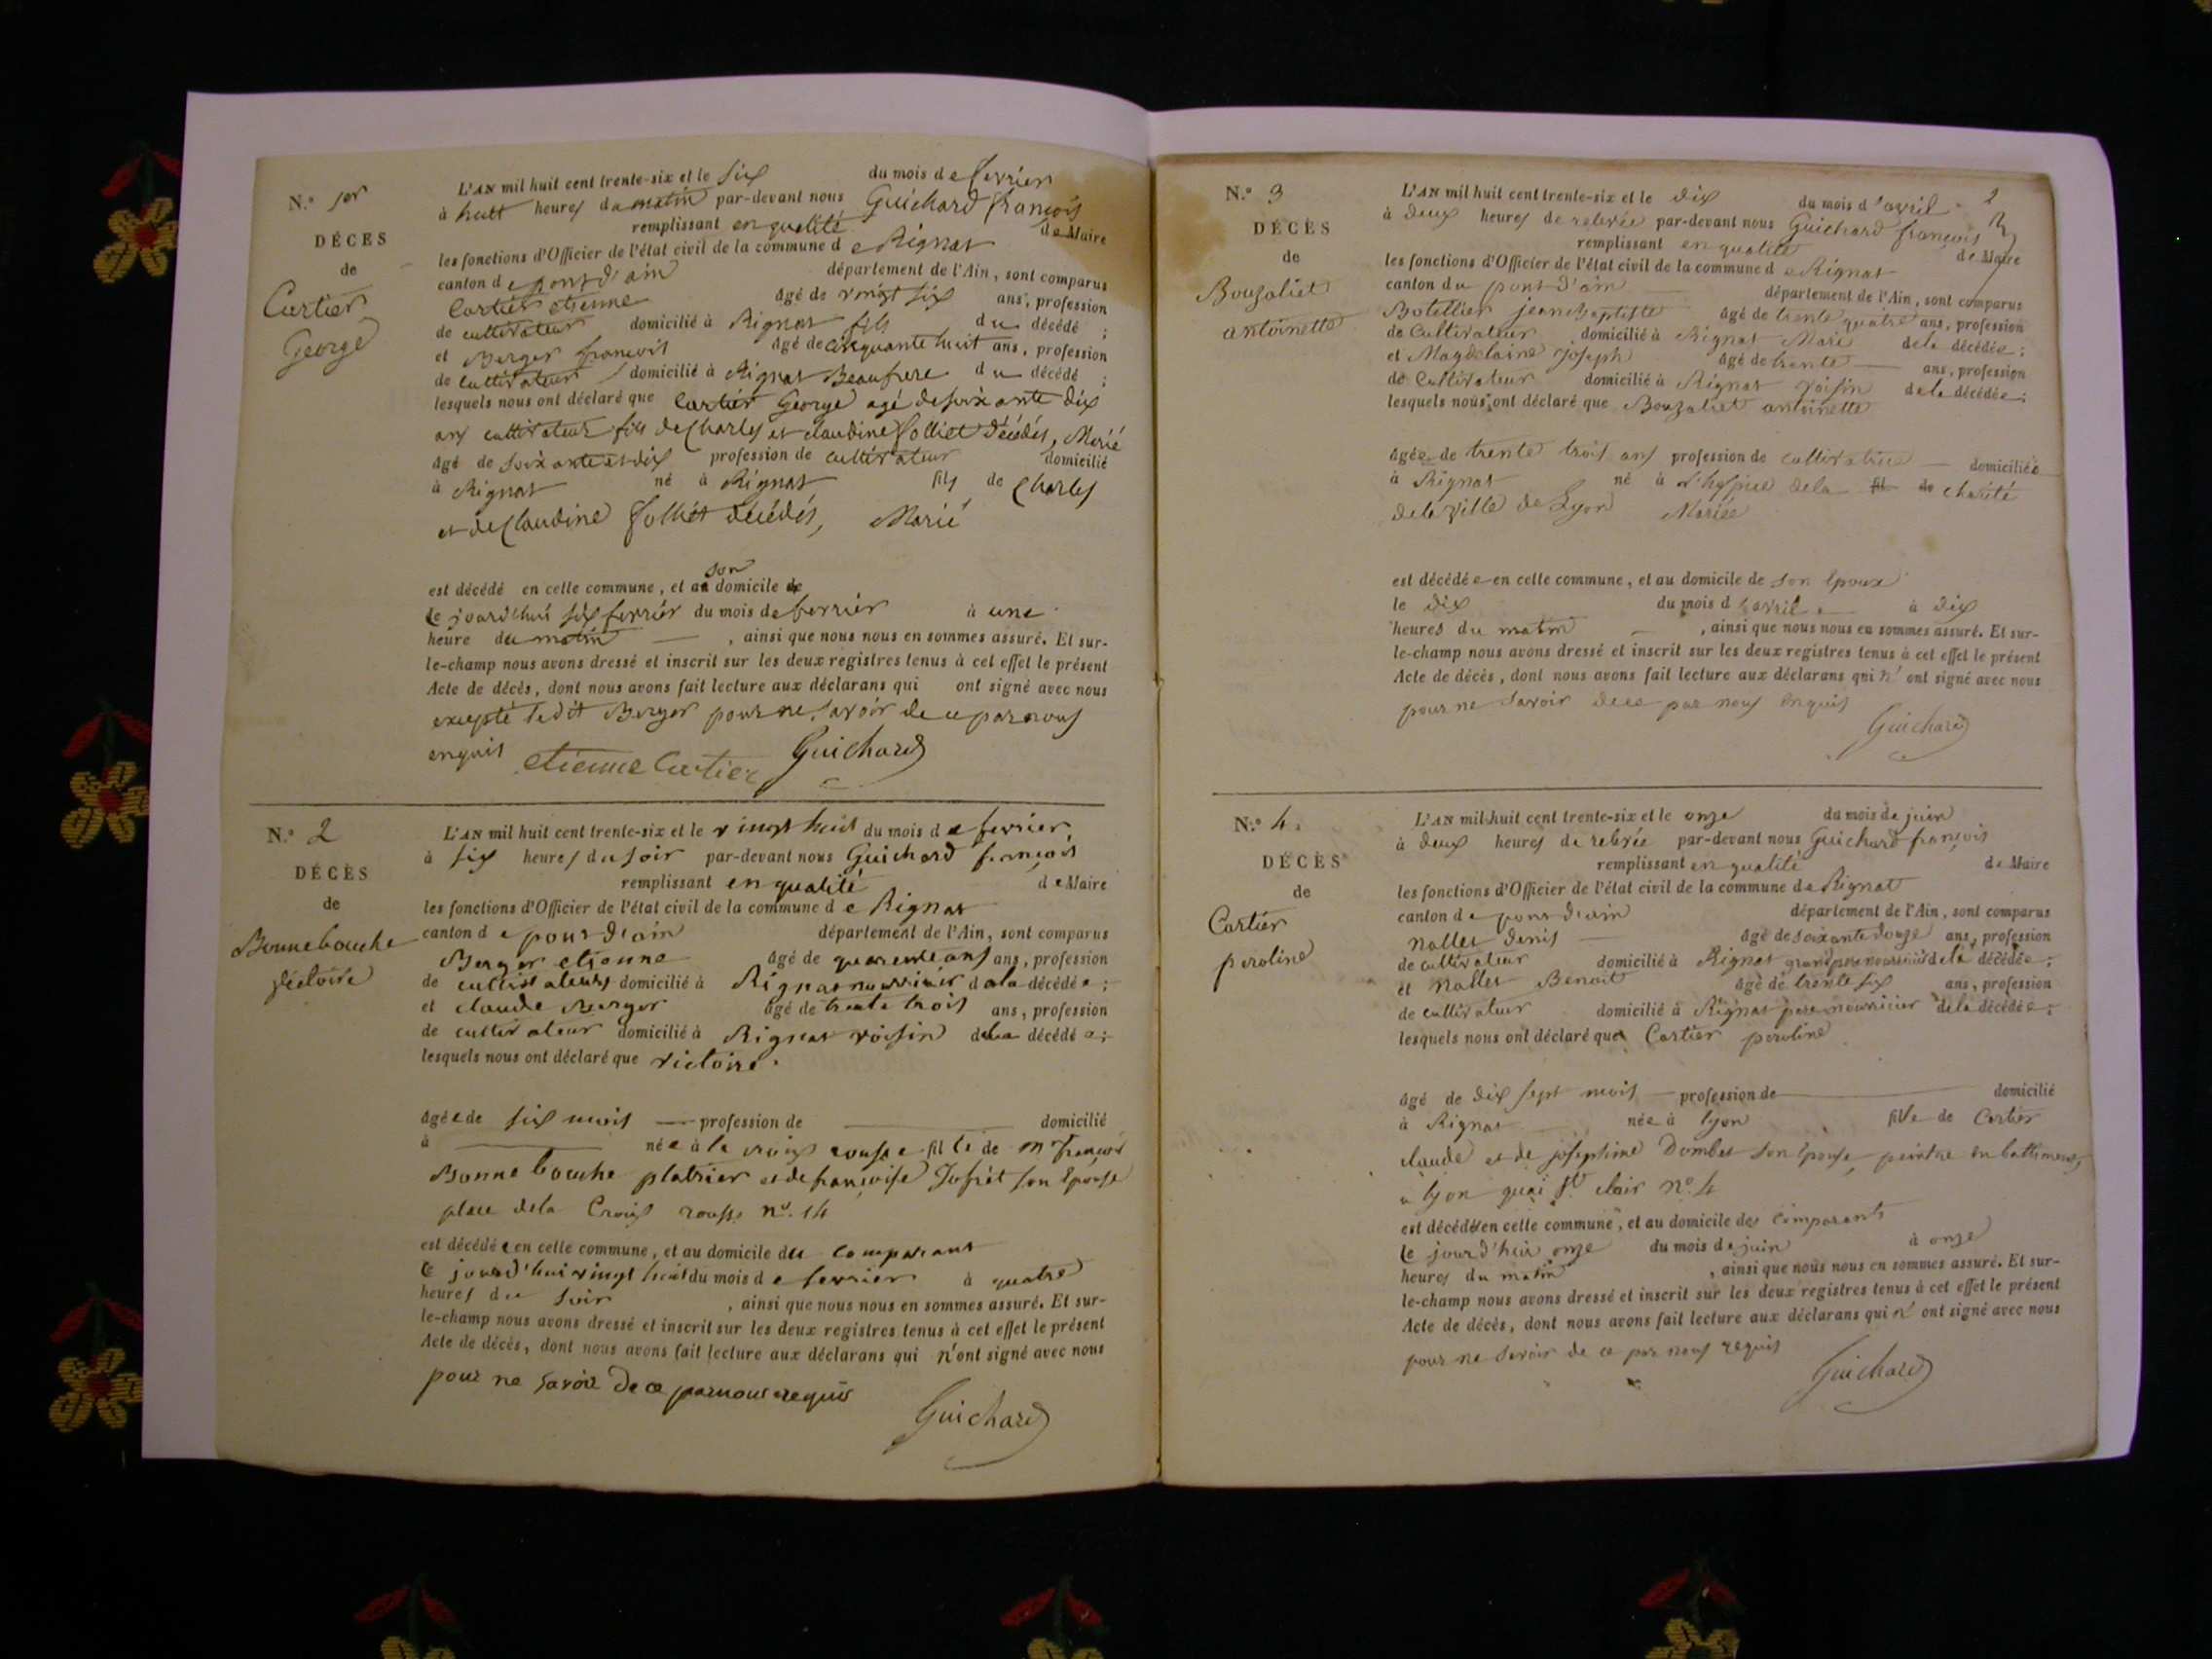 N.° 1er
DÉCÈS
de
Cartier
George
L'AN mil huit cent trente-six et le six du mois de fevrier
à huit heures du matin par-devant nous Guichard françois
remplissant en qualité de Maire
les fonctions d'Officier de l'état civil de la commune de Rignat
canton de pont d'ain département de l'Ain, sont comparus
Cartier etienne âgé de vingt six ans, profession
de cultivateur domicilié à Rignat fils du décédé ;
et Berger françois âgé de cinquante huit ans, profession
de cultivateur domicilié à Rignat Beaufrere du décédé ;
lesquels nous ont déclaré que Cartier George agé de soixante dix
ans cultivateur fils de Charles et claudine folliet décédés, Marié
âgé de soixante et dix profession de cultivateur domicilié
à Rignat né à Rignat fils de Charles
et de Claudine folliet décédés, Marié
est décédé en cette commune, et a son domicile
le jourd'hui six fevrier du mois de fevrier à une
heure du matin , ainsi que nous nous en sommes assuré. Et sur-
le-champ nous avons dressé et inscrit sur les deux registres tenus à cet effet le présent
Acte de décès, dont nous avons fait lecture aux déclarans qui ont signé avec nous
excepté ledit Berger pour ne savoir de ce par nous
enquis etienne Cartier Guichard
N.° 2
DÉCÈS
de
Bonnebouche
victoire
L'AN mil huit cent trente-six et le vingt huit du mois de fevrier
à six heures du soir par-devant nous Guichard françois
remplissant en qualité de Maire
les fonctions d'Officier de l'état civil de la commune de Rignat
canton de pont d'ain département de l'Ain, sont comparus
Berger etienne âgé de quarente ans ans, profession
de cultivateur domicilié à Rignat nourricier de la décédée ;
et claude Berger âgé de trente trois ans, profession
de cultivateur domicilié à Rignat voisin de la décédée ;
lesquels nous ont déclaré que victoire
âgée de six mois profession de domicilié
à née à la croix rousse fille de Mr françois
Bonnebouche platrier et de françoise son Epouse
place de la Croix rousse n°. 14
est décédée en cette commune, et au domicile du comparant
le jourd'hui vingt huit du mois de fevrier à quatre
heures du soir , ainsi que nous nous en sommes assuré. Et sur-
le-champ nous avons dressé et inscrit sur les deux registres tenus à cet effet le présent
Acte de décès, dont nous avons fait lecture aux déclarans qui n'ont signé avec nous
pour ne savoir de ce par nous requis
Guichard
2
N.° 3
DÉCÈS
de
Bouzaliet
antoinette
L'AN mil huit cent trente-six et le dix du mois d'avril
à deux heures de relevée par-devant nous Guichard françois
remplissant en qualité de Maire
les fonctions d'Officier de l'état civil de la commune de Rignat
canton du pont d'ain département de l'Ain, sont comparus
Botellier jean Baptiste âgé de trente quatre ans, profession
de Cultivateur domicilié à Rignat Mari de la décédée ;
et Magdelaine joseph âgé de trente ans, profession
de Cultivateur domicilié à Rignat voisin de la décédée ;
lesquels nous ont déclaré que Bouzaliet antoinette
âgée de trente trois ans profession de cultivatrice domiciliée
à Rignat né à l'hospice de la fil de charité
de la ville de Lyon Mariée
est décédée en cette commune, et au domicile de son Epoux
le dix du mois d'avril à dix
heures du matin , ainsi que nous nous en sommes assuré. Et sur-
le-champ nous avons dressé et inscrit sur les deux registres tenus à cet effet le présent
Acte de décès, dont nous avons fait lecture aux déclarans qui n'ont signé avec nous
pour ne savoir de ce par nous enquis
Guichard
N.° 4.
DÉCÈS
de
Cartier
peroline
L'AN mil huit cent trente-six et le onze du mois de juin
à deux heures de relevée par-devant nous Guichard françois
remplissant en qualité de Maire
les fonctions d'Officier de l'état civil de la commune de Rignat
canton de pont d'ain département de l'Ain, sont comparus
Nallet denis âgé de soixante douze ans, profession
de cultivateur domicilié à Rignat grand pere nourricier de la décédée ;
et Nallet Benoit âgé de trente six ans, profession
de cultivateur domicilié à Rignat pere nourricier de la décédée ;
lesquels nous ont déclaré que Cartier peroline
âgé de dix sept mois profession de domicilié
à Rignat née à lyon fille de Cartier
claude et de josephine Dombet son Epouse, peintre en battiments
a lyon quai St clair n°. 4
est décédée en cette commune, et au domicile des comparants
le jourd'hui onze du mois de juin à onze
heures du matin , ainsi que nous nous en sommes assuré. Et sur-
le-champ nous avons dressé et inscrit sur les deux registres tenus à cet effet le présent
Acte de décès, dont nous avons fait lecture aux déclarans qui n'ont signé avec nous
pour ne savoir de ce par nous requis
Guichard